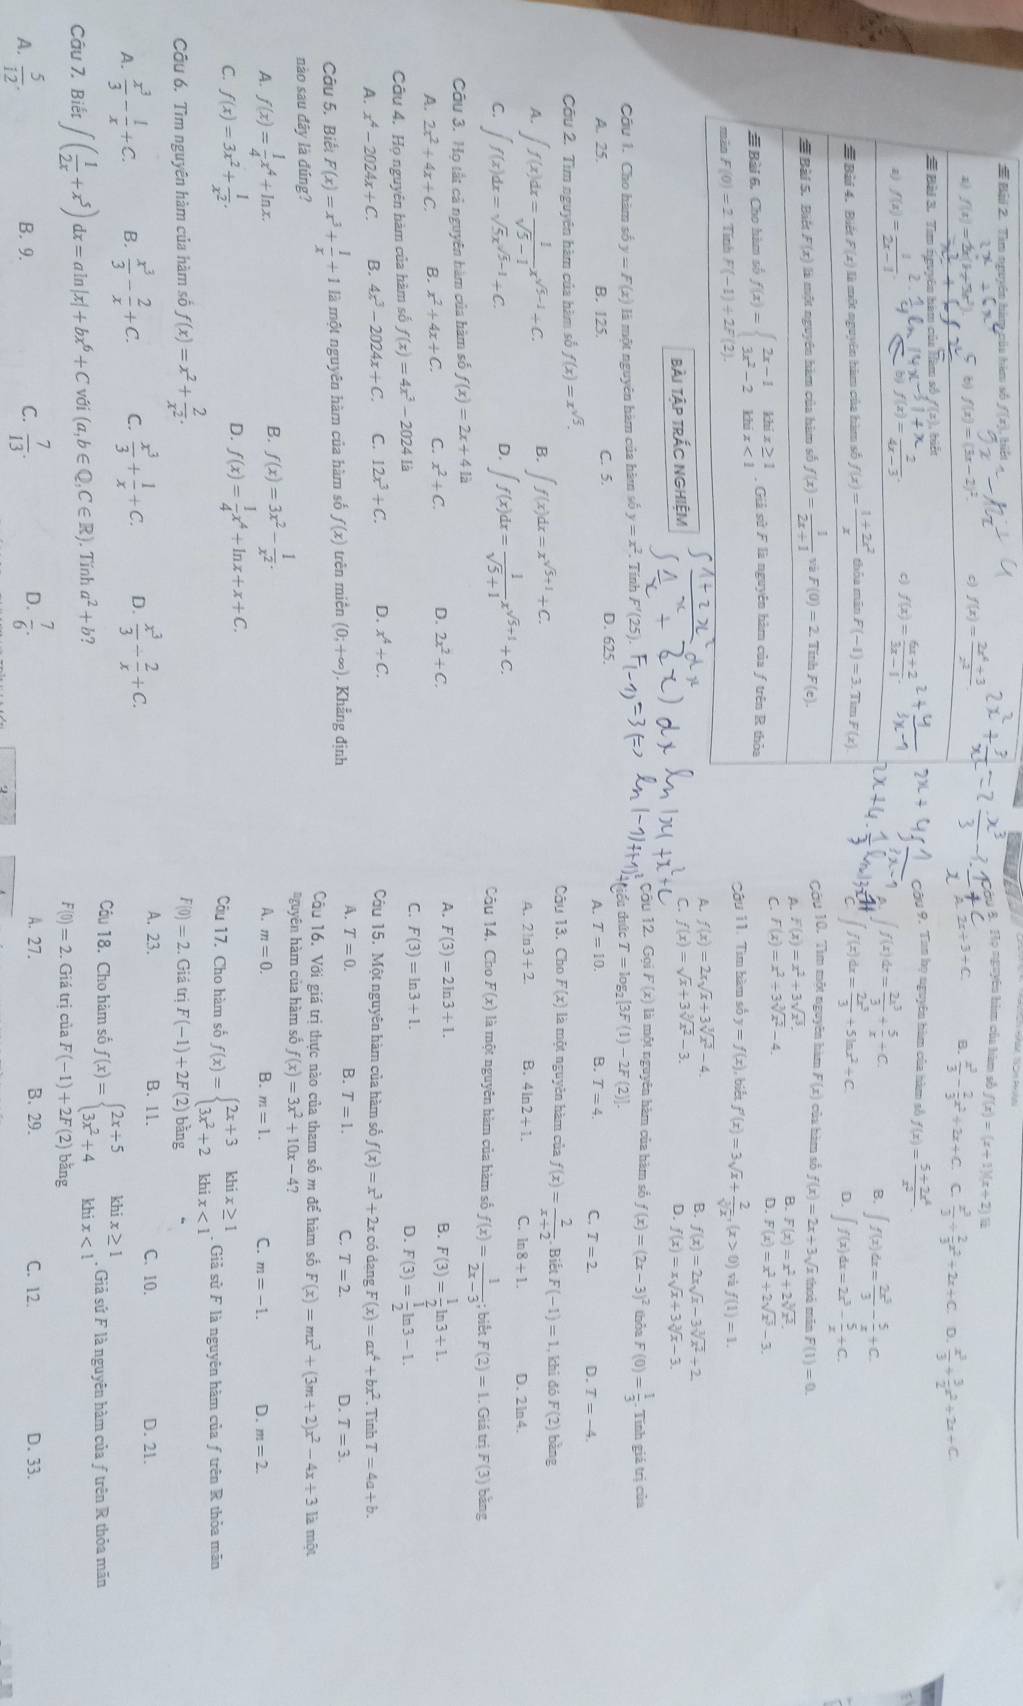 Bài 2. Tìm nguyên hàm của hàm số f(x), biết
a) f(x) = 2x(1+3x³). b) f(x) = (3x-2)². c) f(x) = (2x⁴+3)/x².
Bài 3. Tìm nguyên hàm của hàm số f(x), biết
a) f(x) = 1/(2x-1). b) f(x) = 2/(4x-3). c) f(x) = (6x+2)/(3x-1).
Bài 4. Biết F(x) là một nguyên hàm của hàm số f(x) = (1+2x²)/x thỏa mãn F(-1) = 3. Tìm F(x).
Bài 5. Biết F(x) là một nguyên hàm của hàm số f(x) = 1/(2x+1) và F(0) = 2. Tính F(e).
Bài 6. Cho hàm số f(x) = { 2x-1 khi x ≥ 1; 3x²-2 khi x < 1 . Giả sử F là nguyên hàm của f trên R thỏa
mãn F(0) = 2. Tính F(-1)+2F(2).
BÀI TẬP TRẮC NGHIỆM
∫ (1+2x²)/x dx
F(-1)=3
Câu 1. Cho hàm số y = F(x) là một nguyên hàm của hàm số y = x². Tính F'(25).
A. 25. B. 125. C. 5. D. 625.
Câu 2. Tìm nguyên hàm của hàm số f(x) = x^√5.
A. ∫f(x)dx = 1/(√5-1) x^(√5-1) + C. B. ∫f(x)dx = x^(√5+1) + C.
C. ∫f(x)dx = √5x^(√5-1) + C. D. ∫f(x)dx = 1/(√5+1) x^(√5+1) + C.
Câu 3. Họ tất cả nguyên hàm của hàm số f(x) = 2x+4 là
A. 2x²+4x+C. B. x²+4x+C. C. x²+C. D. 2x²+C.
Câu 4. Họ nguyên hàm của hàm số f(x) = 4x³-2024 là
A. x⁴-2024x+C. B. 4x³-2024x+C. C. 12x³+C. D. x⁴+C.
Câu 5. Biết F(x) = x³ + 1/x + 1 là một nguyên hàm của hàm số f(x) trên miền (0;+∞). Khẳng định
nào sau đây là đúng?
A. f(x) = 1/4 x⁴ + ln x. B. f(x) = 3x² - 1/x².
C. f(x) = 3x² + 1/x². D. f(x) = 1/4 x⁴ + ln x + x + C.
Câu 6. Tìm nguyên hàm của hàm số f(x) = x² + 2/x².
A. x³/3 - 1/x + C. B. x³/3 - 2/x + C. C. x³/3 + 1/x + C. D. x³/3 + 2/x + C.
Câu 7. Biết ∫(1/(2x) + x⁵)dx = a ln|x| + bx⁶ + C với (a,b ∈ Q, C ∈ R). Tính a²+b?
A. 5/12. B. 9. C. 7/13. D. 7/6.
Câu 8. Họ nguyên hàm của hàm số f(x) = (x+1)(x+2) là
A. 2x+3+C. B. x³/3 - 2/3 x² + 2x + C. C. x³/3 + 2/3 x² + 2x + C. D. x³/3 + 3/2 x² + 2x + C.
Câu 9. Tìm họ nguyên hàm của hàm số f(x) = (5+2x⁴)/x².
A. ∫f(x)dx = 2x³/3 + 5/x + C. B. ∫f(x)dx = 2x³/3 - 5/x + C.
C. ∫f(x)dx = 2x³/3 + 5 ln x² + C. D. ∫f(x)dx = 2x³ - 5/x + C.
Câu 10. Tìm một nguyên hàm F(x) của hàm số f(x) = 2x+3√x thỏa mãn F(1) = 0.
A. F(x) = x²+3√x³. B. F(x) = x²+2∛x².
C. F(x) = x²+3∛x²-4. D. F(x) = x²+2√x³-3.
Câu 11. Tìm hàm số y = f(x), biết f'(x) = 3√x + 2/∛x, (x > 0) và f(1) = 1.
A. f(x) = 2x√x+3∛x²-4. B. f(x) = 2x√x-3∛x²+2.
C. f(x) = √x+3∛x²-3. D. f(x) = x√x+3∛x-3.
Câu 12. Gọi F(x) là một nguyên hàm của hàm số f(x) = (2x-3)² thỏa F(0) = 1/3. Tính giá trị của
biểu thức T = log₂[3F(1)-2F(2)].
A. T = 10. B. T = 4. C. T = 2. D. T = -4.
Câu 13. Cho F(x) là một nguyên hàm của f(x) = 2/(x+2). Biết F(-1) = 1, khi đó F(2) bằng
A. 2ln3+2. B. 4ln2+1. C. ln8+1. D. 2ln4.
Câu 14. Cho F(x) là một nguyên hàm của hàm số f(x) = 1/(2x-3); biết F(2) = 1. Giá trị F(3) bằng
A. F(3) = 2ln3+1. B. F(3) = 1/2 ln3+1.
C. F(3) = ln3+1. D. F(3) = 1/2 ln3-1.
Câu 15. Một nguyên hàm của hàm số f(x) = x³+2x có dạng F(x) = ax⁴+bx². Tính T = 4a+b.
A. T = 0. B. T = 1. C. T = 2. D. T = 3.
Câu 16. Với giá trị thực nào của tham số m để hàm số F(x) = mx³+(3m+2)x²-4x+3 là một
nguyên hàm của hàm số f(x) = 3x²+10x-4?
A. m = 0. B. m = 1. C. m = -1. D. m = 2.
Câu 17. Cho hàm số f(x) = { 2x+3 khi x ≥ 1; 3x²+2 khi x < 1 . Giả sử F là nguyên hàm của f trên R thỏa mãn
F(0) = 2. Giá trị F(-1)+2F(2) bằng
A. 23. B. 11. C. 10. D. 21.
Câu 18. Cho hàm số f(x) = { 2x+5 khi x ≥ 1; 3x²+4 khi x < 1 . Giả sử F là nguyên hàm của f trên R thỏa mãn
F(0) = 2. Giá trị của F(-1)+2F(2) bằng
A. 27. B. 29. C. 12. D. 33.